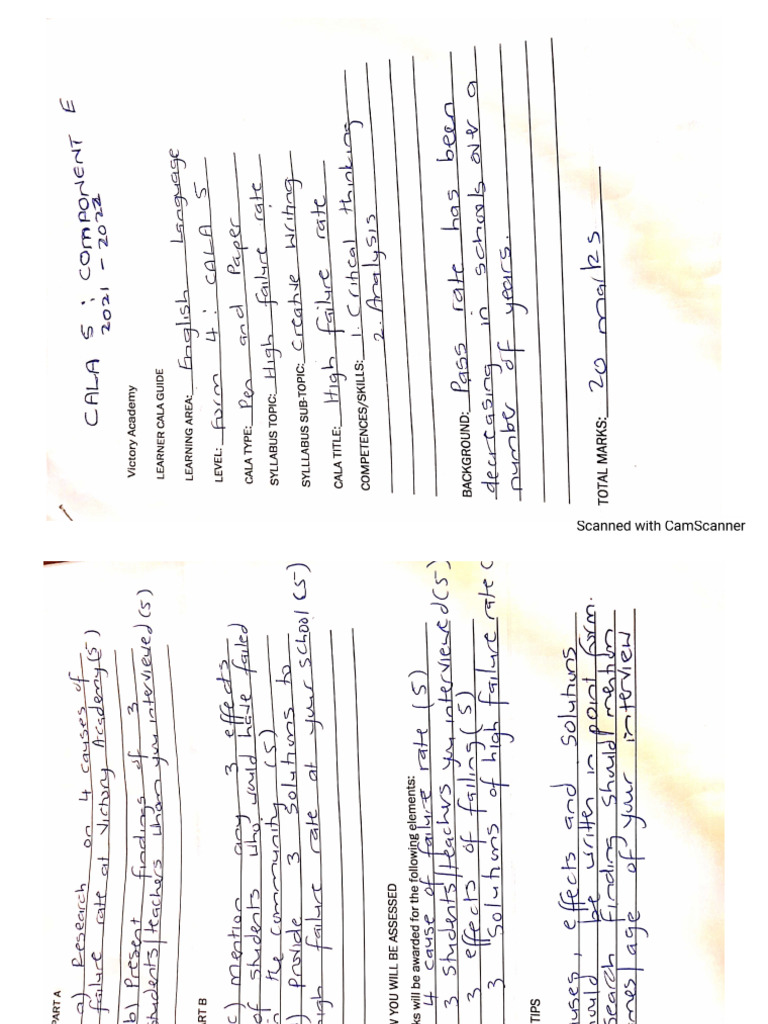 CALA 5 : COMPONENT E
2021 - 2022
Victory Academy
LEARNER CALA GUIDE
LEARNING AREA: English Language
LEVEL: Form 4 : CALA 5
CALA TYPE: Pen and Paper
SYLLABUS TOPIC: High failure rate
SYLLLABUS SUB-TOPIC: Creative writing
CALA TITLE: High failure rate
COMPETENCES/SKILLS: 1. Critical thinking
2. Analysis
BACKGROUND: Pass rate has been
decreasing in schools over a
number of years.
TOTAL MARKS: 20 marks
Scanned with CamScanner
PART A
a) Research on 4 causes of
failure rate at Victory Academy(5)
b) Present findings of 3
students/teachers whom you interviewed (5)
RT B
c) mention any 3 effects
of students who would have failed
in the community (5)
) Provide 3 solutions to
igh failure rate at your school (5)
W YOU WILL BE ASSESSED
ks will be awarded for the following elements:
4 cause of failure rate (5)
3 students/teachers you interviewed(5)
3 effects of failing(5)
3 Solutions of high failure rate (
TIPS
uses, effects and solutions
ould be written in point form.
search finding should mention
mes/age of your interview